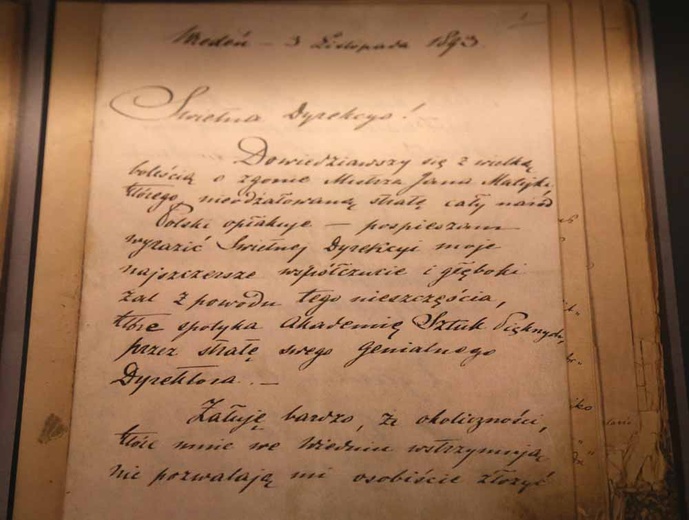 Wiedeń — 3 Listopada 1893.
Świetna Dyrekcyo!
Dowiedziawszy się z wielką
boleścią o zgonie Mistrza Jana Matejki,
którego nieodżałowaną stratę cały naród
Polski opłakuje — pospieszam
wyrazić Świetnej Dyrekcyi moje
najszczersze współczucie i głęboki
żal z powodu tego nieszczęścia,
które spotyka Akademię Sztuk Pięknych,
przez stratę swego genialnego
Dyrektora. —
Żałuję bardzo, że okoliczności,
które mnie we Wiedniu wstrzymują
nie pozwalają mi osobiście złożyć